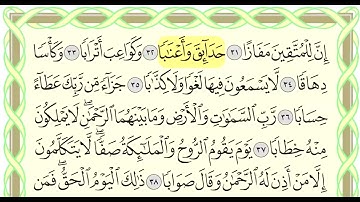 إِنَّ لِلْمُتَّقِينَ مَفَازًا ٣١ حَدَآئِقَ وَأَعْنَٰبًا ٣٢ وَكَوَاعِبَ أَتْرَابًا ٣٣ وَكَأْسًا
دِهَاقًا ٣٤ لَّا يَسْمَعُونَ فِيهَا لَغْوًا وَلَا كِذَّٰبًا ٣٥ جَزَآءً مِّن رَّبِّكَ عَطَآءً
حِسَابًا ٣٦ رَّبِّ ٱلسَّمَٰوَٰتِ وَٱلْأَرْضِ وَمَا بَيْنَهُمَا ٱلرَّحْمَٰنِ ۖ لَا يَمْلِكُونَ
مِنْهُ خِطَابًا ٣٧ يَوْمَ يَقُومُ ٱلرُّوحُ وَٱلْمَلَٰٓئِكَةُ صَفًّا ۖ لَّا يَتَكَلَّمُونَ
إِلَّا مَنْ أَذِنَ لَهُ ٱلرَّحْمَٰنُ وَقَالَ صَوَابًا ٣٨ ذَٰلِكَ ٱلْيَوْمُ ٱلْحَقُّ ۖ فَمَن